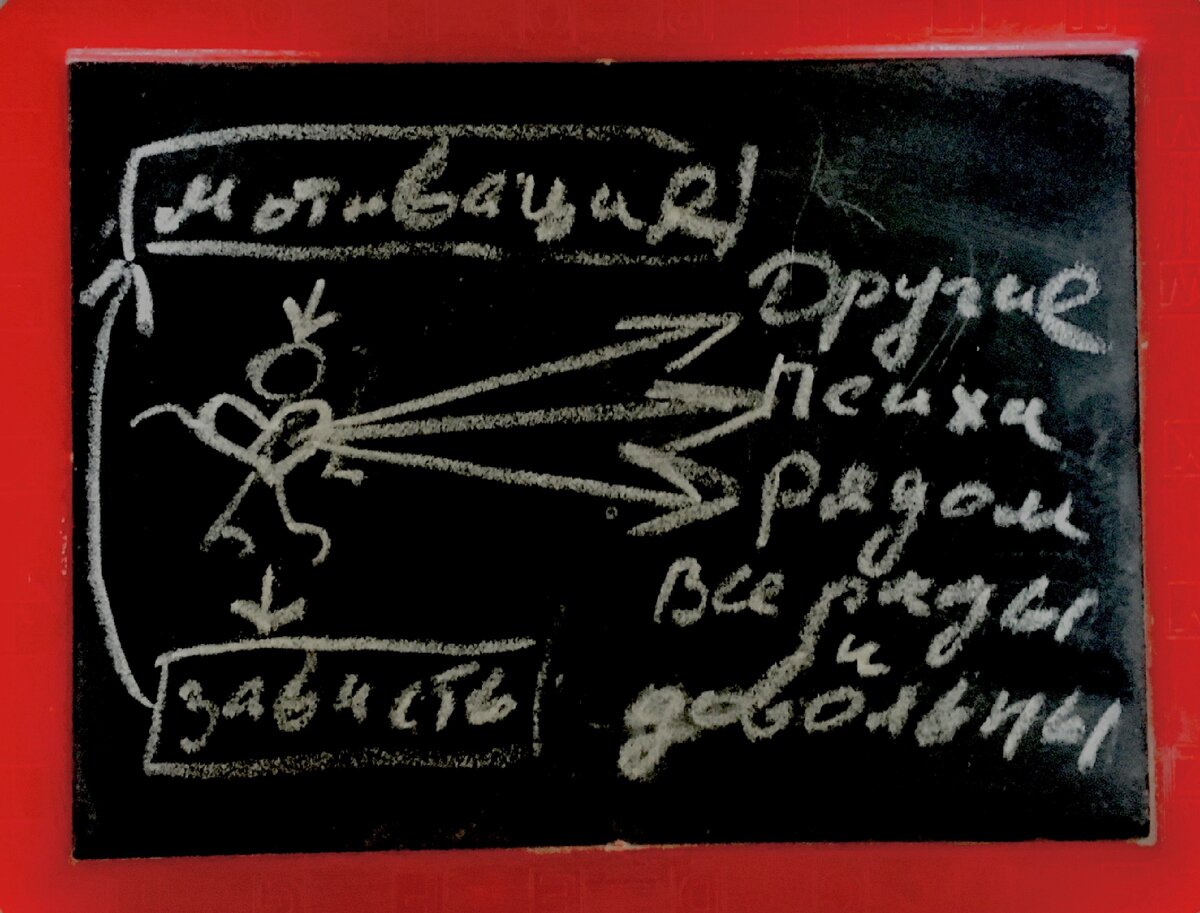 мотивация
Другие
психи
рядом
Все рады
и
довольны
зависть